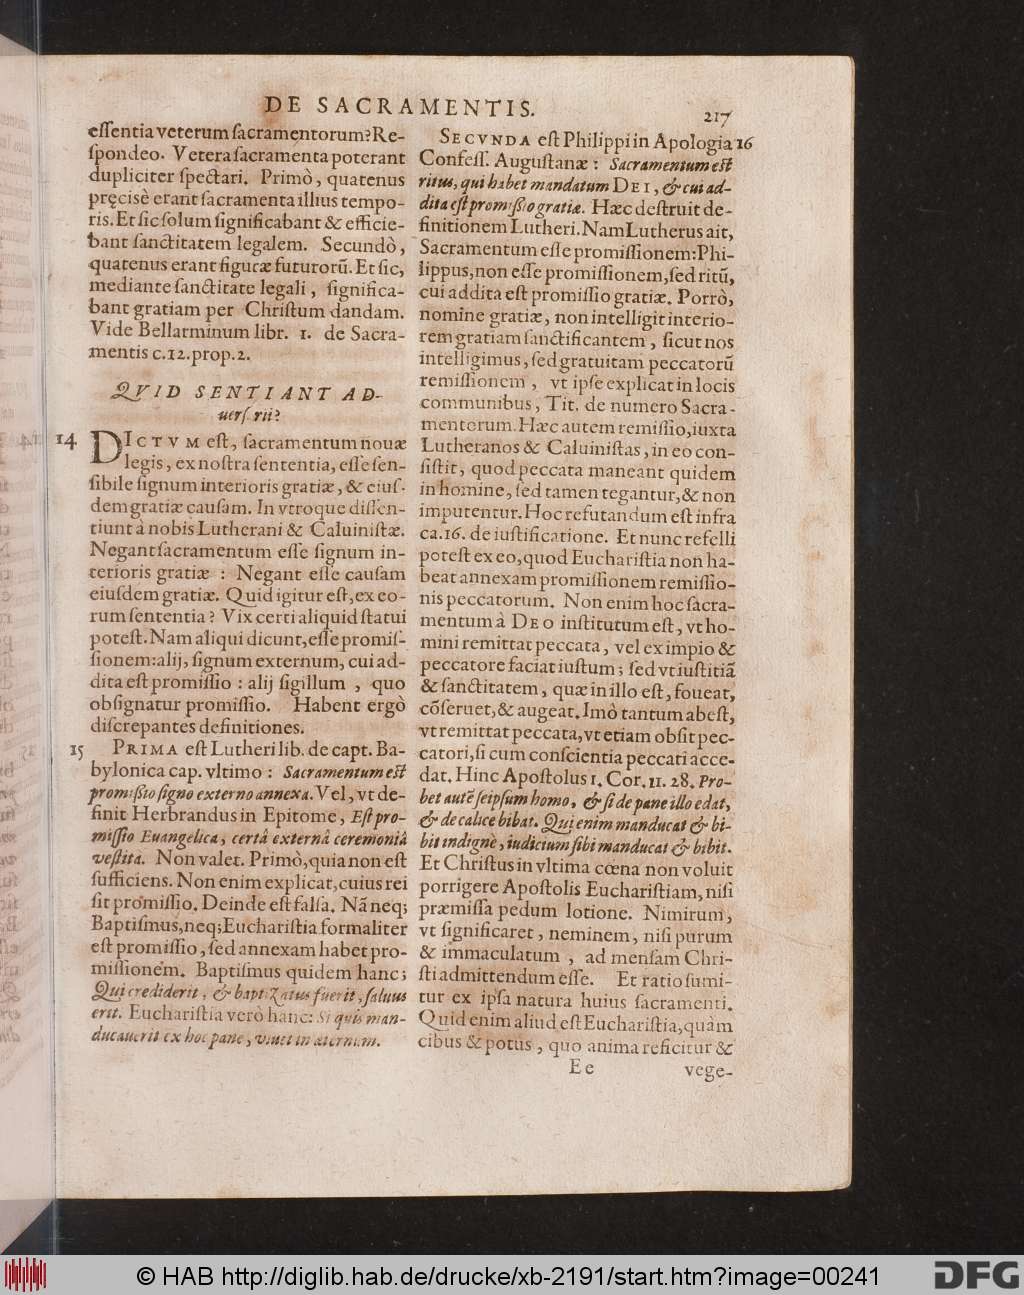 DE SACRAMENTIS.
217
eſſentia veterum ſacramentorum? Re-
ſpondeo. Vetera ſacramenta poterant
dupliciter ſpectari. Primò, quatenus
pręcisè erant ſacramenta illius tempo-
ris. Et ſic ſolum ſignificabant & efficie-
bant ſanctitatem legalem. Secundò,
quatenus erant figuræ futurorū. Et ſic,
mediante ſanctitate legali, ſignifica-
bant gratiam per Chriſtum dandam.
Vide Bellarminum libr. 1. de Sacra-
mentis c.12.prop.2.
QVID SENTIANT AD-
uerſ rii?
14
DICTVM eſt, ſacramentum nouæ
legis, ex noſtra ſententia, eſſe ſen-
ſibile ſignum interioris gratiæ, & eiuſ-
dem gratiæ cauſam. In vtroque diſſen-
tiunt à nobis Lutherani & Caluiniſtæ.
Negant ſacramentum eſſe ſignum in-
terioris gratiæ : Negant eſſe cauſam
eiuſdem gratiæ. Quid igitur eſt, ex eo-
rum ſententia? Vix certi aliquid ſtatui
poteſt. Nam aliqui dicunt, eſſe promiſ-
ſionem: alij, ſignum externum, cui ad-
dita eſt promiſſio : alij ſigillum , quo
obſignatur promiſſio. Habent ergò
diſcrepantes definitiones.
15
PRIMA eſt Lutheri lib. de capt. Ba-
bylonica cap. vltimo : Sacramentum eſt
promiſsio ſigno externo annexa. Vel, vt de-
finit Herbrandus in Epitome, Eſt pro-
miſſio Euangelica, certâ externâ ceremoniâ
veſtita. Non valet. Primò, quia non eſt
ſufficiens. Non enim explicat, cuius rei
ſit promiſſio. Deinde eſt falſa. Nā neq;
Baptiſmus, neq; Euchariſtia formaliter
eſt promiſſio, ſed annexam habet pro-
miſſionem. Baptiſmus quidem hanc;
Qui crediderit, & baptizatus fuerit, ſaluus
erit. Euchariſtia verò hanc: Si quis man-
ducauerit ex hoc pane, viuet in æternum.
SECVNDA eſt Philippi in Apologia
16
Confeſſ. Auguſtanæ : Sacramentum eſt
ritus, qui habet mandatum DEI, & cui ad-
dita eſt promiſsio gratiæ. Hæc deſtruit de-
finitionem Lutheri. Nam Lutherus ait,
Sacramentum eſſe promiſſionem: Phi-
lippus, non eſſe promiſſionem, ſed ritū,
cui addita eſt promiſſio gratiæ. Porrò,
nomine gratiæ, non intelligit interio-
rem gratiam ſanctificantem, ſicut nos
intelligimus, ſed gratuitam peccatorū
remiſſionem , vt ipſe explicat in locis
communibus, Tit. de numero Sacra-
mentorum. Hæc autem remiſſio, iuxta
Lutheranos & Caluiniſtas, in eo con-
ſiſtit, quod peccata maneant quidem
in homine, ſed tamen tegantur, & non
imputentur. Hoc refutandum eſt infra
ca.16. de iuſtificatione. Et nunc refelli
poteſt ex eo, quod Euchariſtia non ha-
beat annexam promiſſionem remiſſio-
nis peccatorum. Non enim hoc ſacra-
mentum à DEO inſtitutum eſt, vt ho-
mini remittat peccata, vel ex impio &
peccatore faciat iuſtum; ſed vt iuſtitiā
& ſanctitatem, quæ in illo eſt, foueat,
cōſeruet, & augeat. Imò tantum abeſt,
vt remittat peccata, vt etiam obſit pec-
catori, ſi cum conſcientia peccati acce-
dat. Hinc Apoſtolus 1. Cor. 11. 28. Pro-
bet autē ſeipſum homo, & ſi de pane illo edat,
& de calice bibat. Qui enim manducat & bi-
bit indignè, iudicium ſibi manducat & bibit.
Et Chriſtus in vltima cœna non voluit
porrigere Apoſtolis Euchariſtiam, niſi
præmiſſa pedum lotione. Nimirum,
vt ſignificaret, neminem, niſi purum
& immaculatum , ad menſam Chri-
ſti admittendum eſſe. Et ratio ſumi-
tur ex ipſa natura huius ſacramenti.
Quid enim aliud eſt Euchariſtia, quàm
cibus & potus, quo anima reficitur &
Ee
vege-
© HAB http://diglib.hab.de/drucke/xb-2191/start.htm?image=00241
DFG